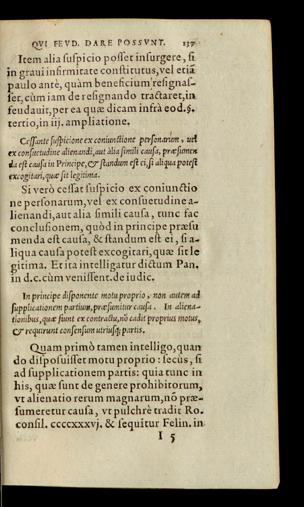 QVI FEVD. DARE POSSVNT. 137
Item alia suspicio posset insurgere, si
in graui infirmitate constitutus, vel etiã
paulo antè, quàm beneficium resignas-
set, cùm iam de resignando tractaret, in
feudauit, per ea quæ dicam infrà eod. §.
tertio, in iij. ampliatione.
Cessante suspicione ex coniunctione personarum, vel
ex consuetudine alienandi, aut alia simili causa, præsumen
da est causa in Principe, & standum est ei, si aliqua potest
excogitari, quæ sit legitima.
Si verò cessat suspicio ex coniunctio
ne personarum, vel ex consuetudine a-
lienandi, aut alia simili causa, tunc fac
conclusionem, quòd in principe præsu
menda est causa, & standum est ei, si a-
liqua causa potest excogitari, quæ sit le
gitima. Et ita intelligatur dictum Pan.
in d.c. cùm venissent. de iudic.
In principe disponente motu proprio, non autem ad
supplicationem partium, præsumitur causa. In aliena-
tionibus, quæ fiunt ex contractu, nõ cadit proprius motus,
& requirunt consensum vtriusq; partis.
Quam primò tamen intelligo, quan
do disposuisset motu proprio: secùs, si
ad supplicationem partis: quia tunc in
his, quæ sunt de genere prohibitorum,
vt alienatio rerum magnarum, nõ præ-
sumeretur causa, vt pulchrè tradit Ro.
consil. ccccxxxvj. & sequitur Felin. in
I 5